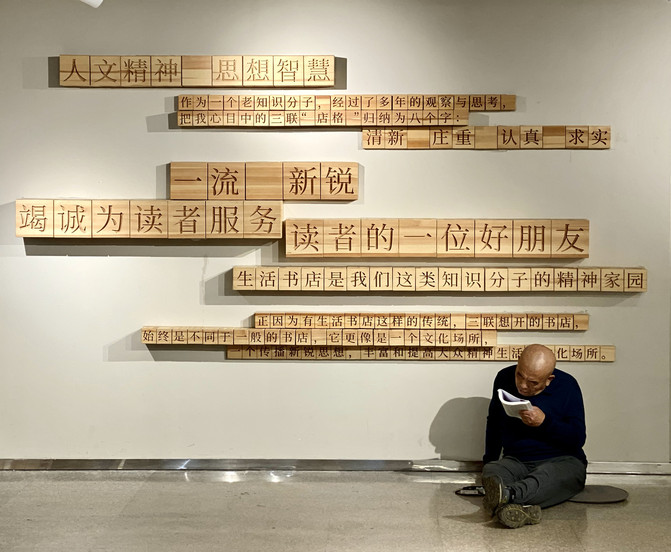 人文精神 思想智慧
作为一个老知识分子，经过了多年的观察与思考，
把我心目中的三联“店格”归纳为八个字：
清新 庄重 认真 求实
一流 新锐
竭诚为读者服务
读者的一位好朋友
生活书店是我们这类知识分子的精神家园
正因为有生活书店这样的传统，三联想开的书店，
始终是不同于一般的书店，它更像是一个文化场所，
一个传播新锐思想，丰富和提高大众精神生活 化场所。